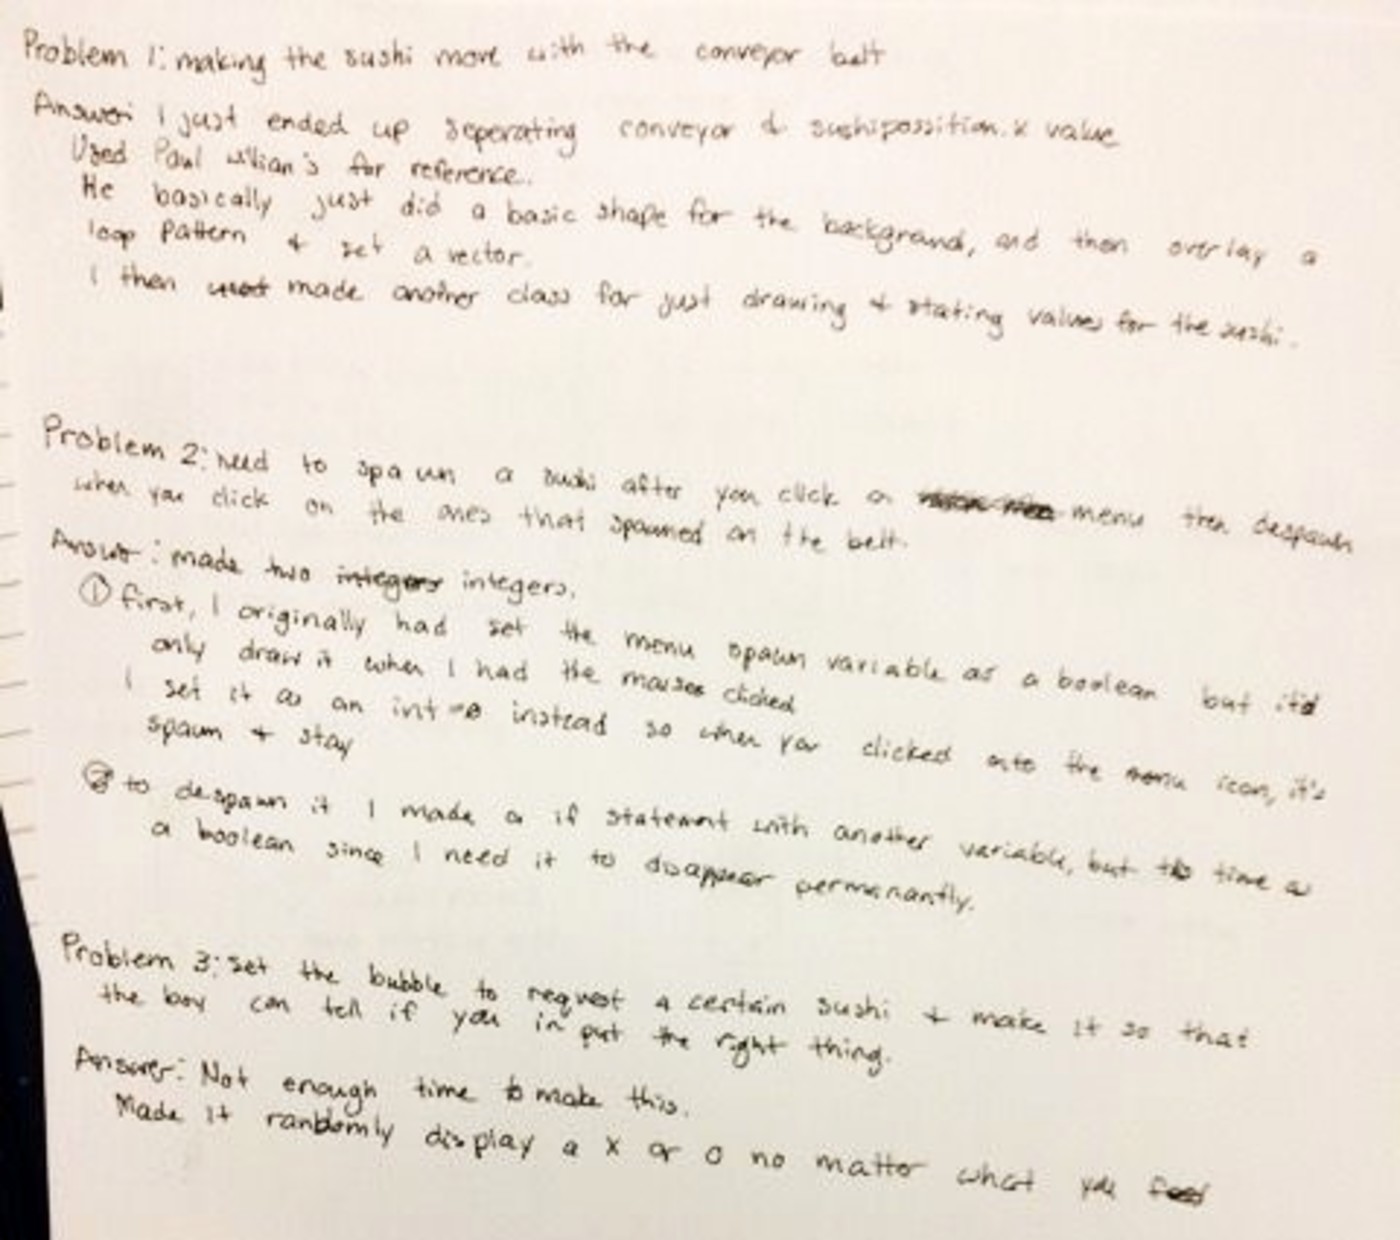 Problem 1: making the sushi move with the conveyor belt
Answer: I just ended up seperating conveyor & sushipossition.x value
Used Paul for reference.
He basically just did a basic shape for the background, and then overlay a
loop pattern + set a vector.
I then made another class for just drawing + stating values for the sushi.
Problem 2: need to spawn a sushi after you click a menu then despawn
when you click on the ones that spawned on the belt.
Answer: made two integers integers.
① first, I originally had set the menu spawn variable as a boolean but it'd
only draw it when I had the mouse clicked
I set it as an int instead so when you clicked onto the menu icon, it's
spawn + stay
② to despawn it I made a if statement with another variable, but time as
a boolean since I need it to disappear permanantly.
Problem 3: set the bubble to request a certain sushi + make it so that
the boy can tell if you in put the right thing.
Answer: Not enough time to make this.
Made it randomly display a X or O no matter what you feed